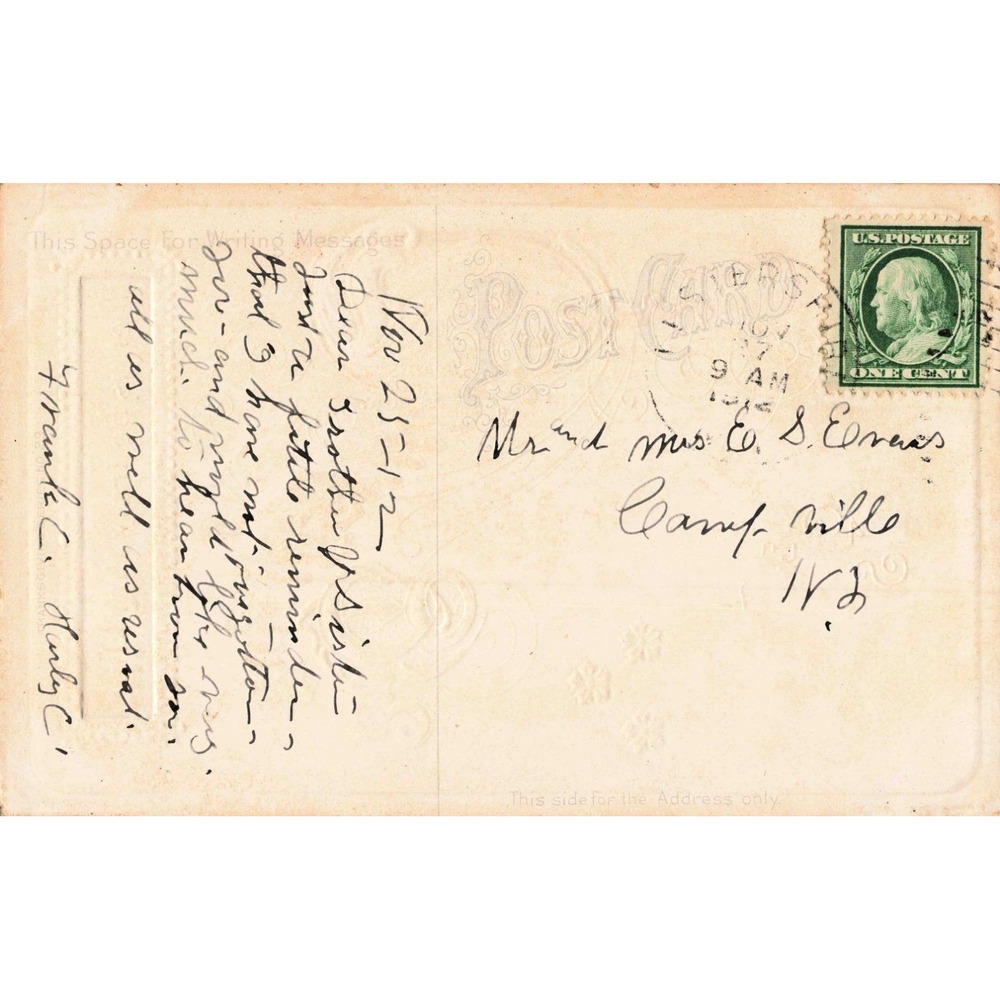 This Space For Writing Messages
Nov 25-12
Dear Brother & Sister
Just a little reminder
that I have not forgotten
you and would like very
much to hear from you.
all as well as usual.
Frank C.
POST CARD
NOV
9 AM
1912
U.S. POSTAGE
ONE CENT
Mr and Mrs E. S. Evans
Camp-ville
NY
This side for the Address only.